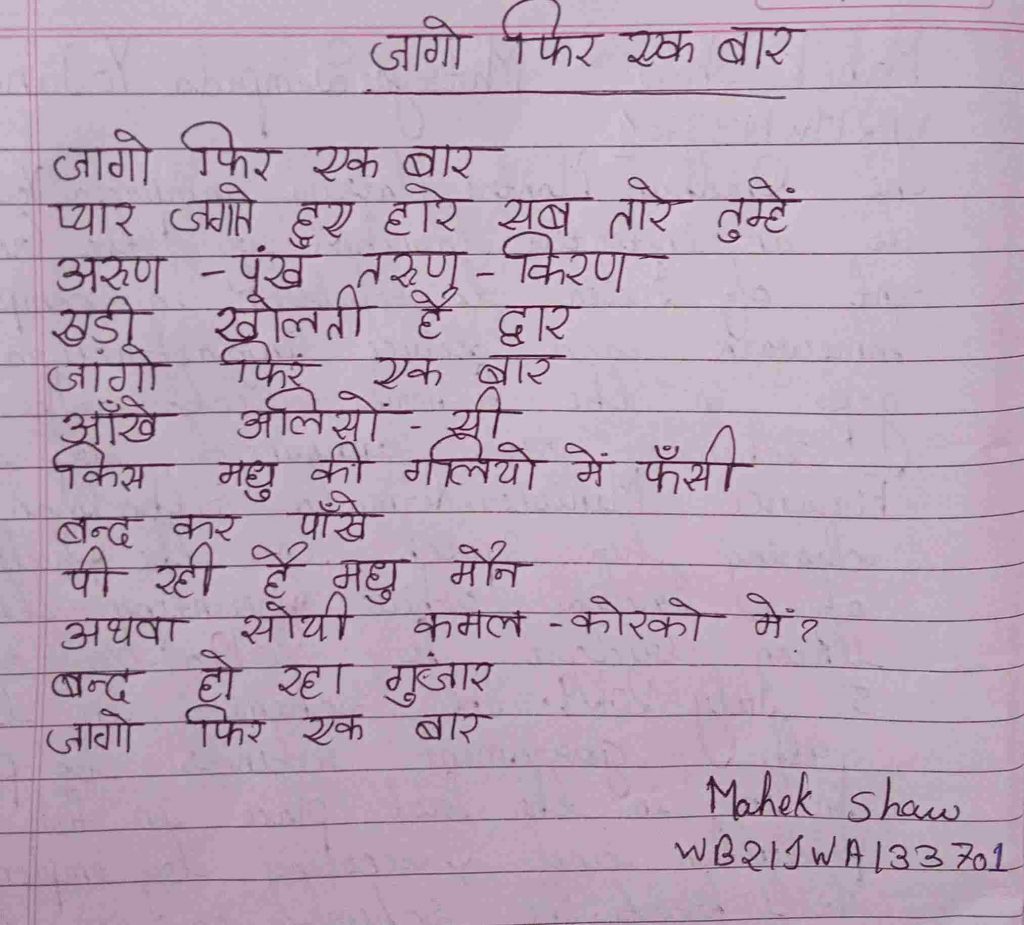 जागो फिर एक बार
जागो फिर एक बार
प्यार जगाते हुए हारे सब तारे तुम्हें
अरुण - पंख तरुण - किरण
खडी खोलती है द्वार
जांगो फिर एक बार
आँखे अलियों - सी
किस मधु की गलियो में फँसी
बन्द कर पाँखे
पी रही है मधु मौन
अथवा सोयी कमल - कोरको में?
बन्द हो रहा गुंजार
जागो फिर एक बार
Mahek Shaw
WB21JWA133701